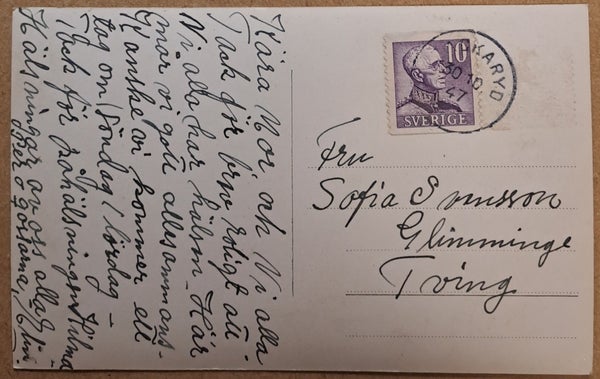 Kära Mor och Ni alla
Tack för brev roligt att
Ni alla har hälsan. Här
mår vi gott allesammans -
Kanske vi kommer ett
tag om Söndag / lördag -
Tack för
Hälsningar av oss alla
10
SVERIGE
KARYD
30 10
47
Fru
Sofia Svensson
Glimminge
Tving